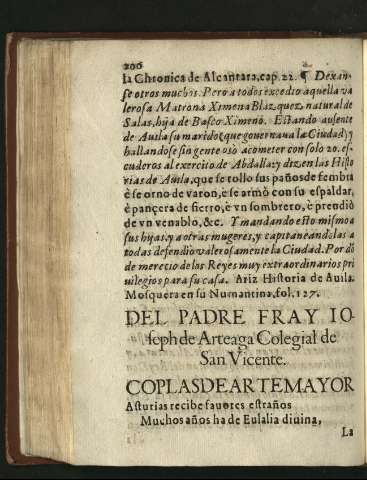 206
la Chronica de Alcantara, cap. 22. ¶ Dexan-
se otros muchos. Pero a todos excedio aquella va
lerosa Matrona Ximena Blazquez, natural de
Salas, hija de Basco Ximeno. Estando ausente
de Auila su marido (que gouernaua la Ciudad) y
hallandose sin gente osò acometer con solo 20. es-
cuderos al exercito de Abdalla: y dizen las Histo
rias de Auila, que se tollo sus paños de fembra
è se orno de varon, è se armò con su espaldar,
è pancera de fierro, è vn sombrero, è prendiò
de vn venablo, &c. Y mandando esto mismo a
sus hijas, y a otras mugeres, y capitaneandolas a
todas defendiò valerosamente la Ciudad. Por dò
de merecio de los Reyes muy extraordinarios pri
uilegios para su casa. Ariz Historia de Auila.
Mosquera en su Numantina, fol. 127.
DEL PADRE FRAY IO-
seph de Arteaga Colegial de
San Vicente.
COPLAS DE ARTE MAYOR
Asturias recibe fauores estraños
Muchos años ha de Eulalia diuina,
La